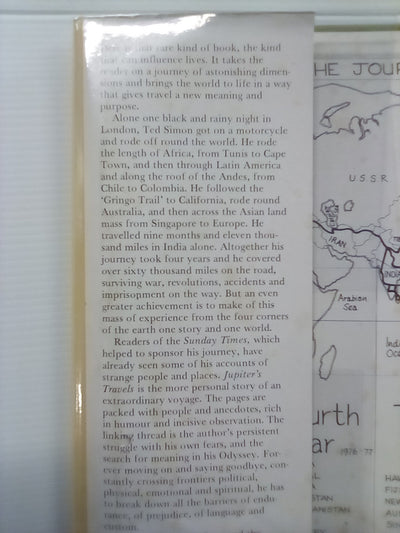 Here is that rare kind of book, the kind
that can influence lives. It takes the
reader on a journey of astonishing dimen-
sions and brings the world to life in a way
that gives travel a new meaning and
purpose.
Alone one black and rainy night in
London, Ted Simon got on a motorcycle
and rode off round the world. He rode
the length of Africa, from Tunis to Cape
Town, and then through Latin America
and along the roof of the Andes, from
Chile to Colombia. He followed the
'Gringo Trail' to California, rode round
Australia, and then across the Asian land
mass from Singapore to Europe. He
travelled nine months and eleven thou-
sand miles in India alone. Altogether his
journey took four years and he covered
over sixty thousand miles on the road,
surviving war, revolutions, accidents and
imprisonment on the way. But an even
greater achievement is to make of this
mass of experience from the four corners
of the earth one story and one world.
Readers of the Sunday Times, which
helped to sponsor his journey, have
already seen some of his accounts of
strange people and places. Jupiter's
Travels is the more personal story of an
extraordinary voyage. The pages are
packed with people and anecdotes, rich
in humour and incisive observation. The
linking thread is the author's persistent
struggle with his own fears, and the
search for meaning in his Odyssey. For-
ever moving on and saying goodbye, con-
stantly crossing frontiers political,
physical, emotional and spiritual, he has
to break down all the barriers of endu-
rance, of prejudice, of language and
custom.
HE JOU
USSR
IRAN
INDIA
Arabian
Sea
Indi
Oce
urth
ar
1976 77
STAN
HANISTAN
HAW
FIJ
NEW
AUS
SIN